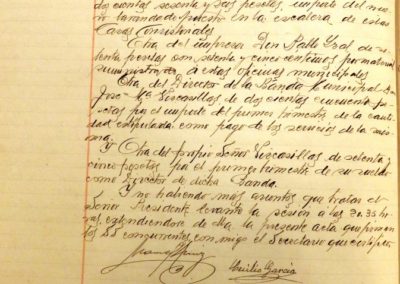 dos cientas sesenta y dos pesetas, importe del mue
ble urinario puesto en la escalera de estas
Casas Consistoriales
Otra del impresor Don Pablo Ysal de se
tenta pesetas con setenta y cinco centimos por material
suministrado á estas oficinas municipales
Otra del Director de la Banda Municipal Don
Jose Mª Vizcasillas de dos cientas cincuenta pe
setas por el importe del primer trimestre de la canti
dad estipulada como pago de los servicios de la mis
ma.
Y Otra del propio Señor Vizcasillas de setenta y
cinco pesetas por el primer trimestre de su sueldo
como Director de dicha Banda.
Y no habiendo mas asuntos que tratar el
Señor Presidente levanta la sesión á las 20.35 ho
ras, extendiendose de ella la presente acta que firman
los SS concurrentes con migo el Secretario que certifico
Emilio Garcia